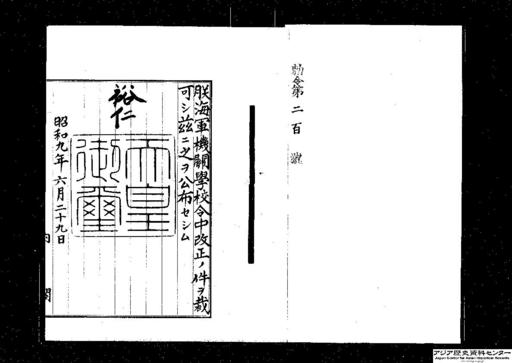 勅令第二百
朕海軍機關學校令中改正ノ件ヲ裁
可シ茲ニ之ヲ公布セシム
裕仁
天皇御璽
昭和九年六月二十九日
内閣
アジア歴史資料センター
Japan Center for Asian Historical Records